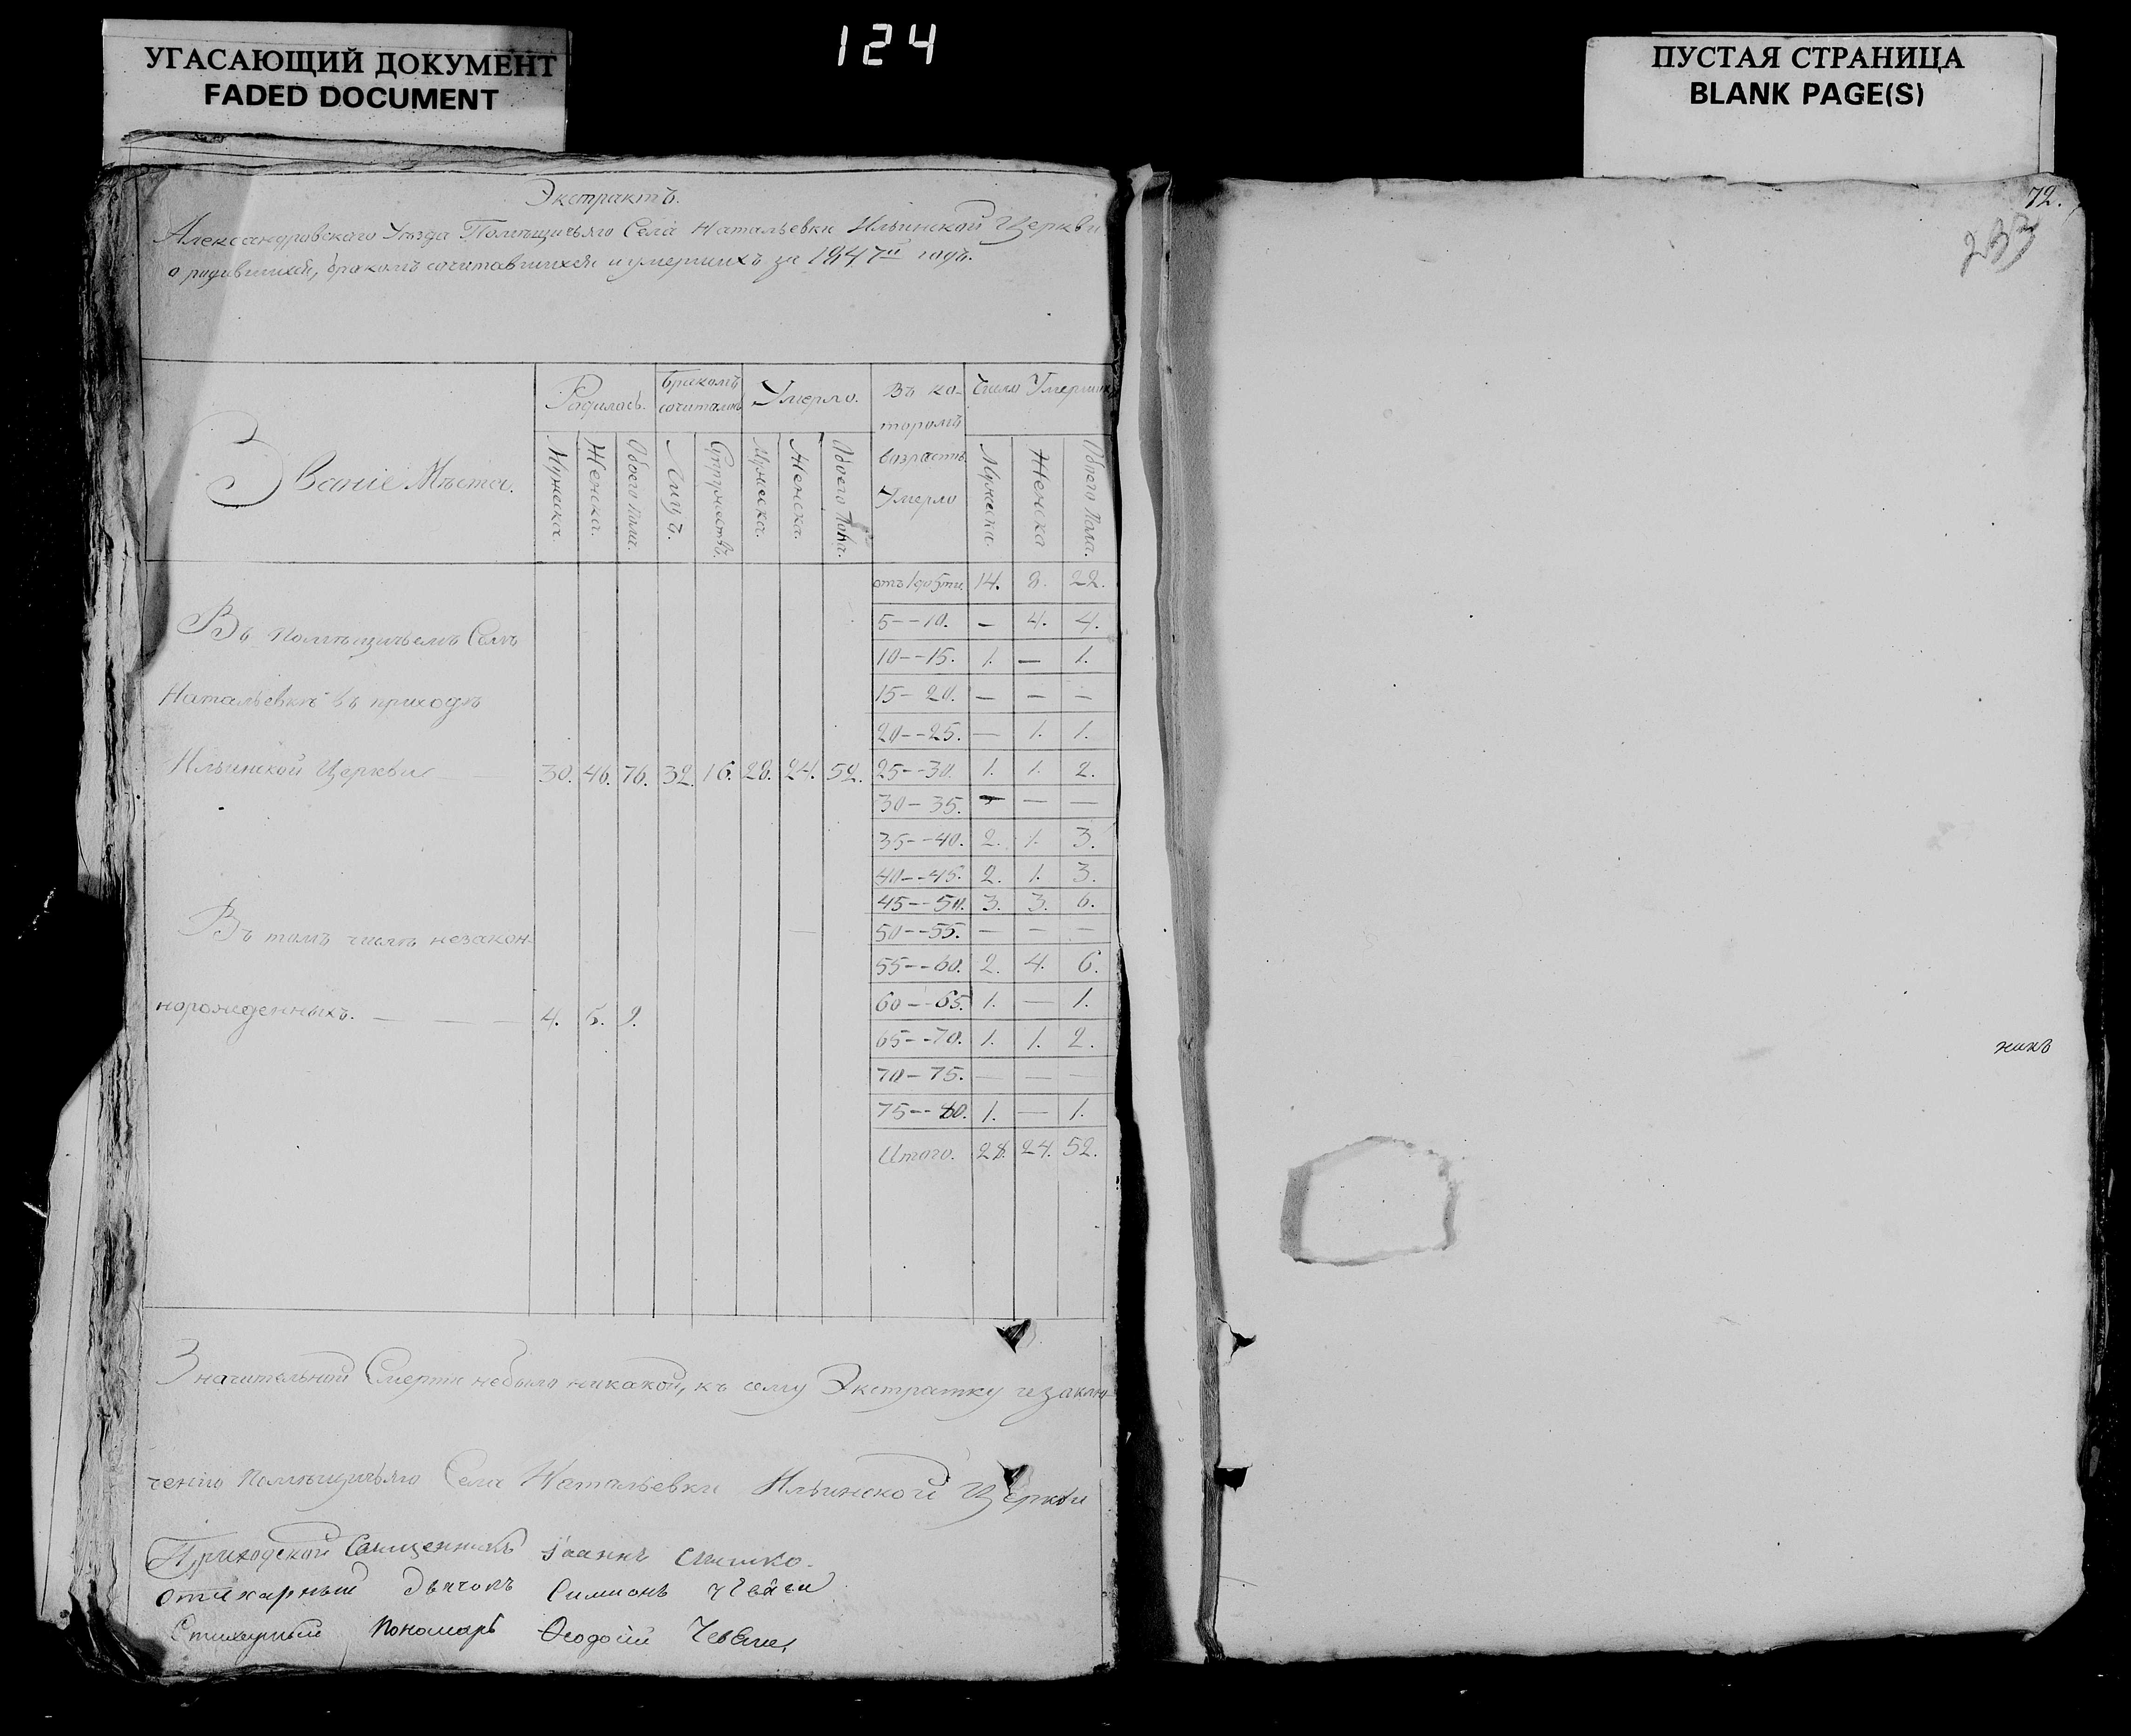 УГАСАЮЩИЙ ДОКУМЕНТ
FADED DOCUMENT
124
ПУСТАЯ СТРАНИЦА
BLANK PAGE(S)
72.
233
Экстрактъ.
Александровскаго Уѣзда Помѣщичьяго Села Натальевки Ильинской Церкви
о родившихся, бракомъ сочитавшихся и умершихъ за 1847й годъ.
Званіе Мѣста.
Родилось.
Мужеска.
Женска.
Обоего Пола.
Бракомъ сочиталось
Лицъ.
Супружествъ.
Умерло.
Мужеска.
Женска.
Обоего Пола.
Въ ко-
торомъ
возрастѣ
Умерло
Число Умершихъ
Мужеска.
Женска
Обоего Пола.
отъ 1 до 5ти 14. 8. 22.
5--10. — 4. 4.
10--15. 1. — 1.
15-20. — — —
20--25. — 1. 1.
25--30. 1. 1. 2.
30-35. — — —
35--40. 2. 1. 3.
40--45. 2. 1. 3.
45--50. 3. 3. 6.
50--55. — — —
55--60. 2. 4. 6.
60--65. 1. — 1.
65--70. 1. 1. 2.
70-75. — — —
75--80. 1. — 1.
Итого. 28. 24. 52.
Въ Помѣщичьемъ Селѣ
Натальевкѣ въ приходѣ
Ильинской Церкви — 30. 46. 76. 32. 16. 28. 24. 52.
Въ томъ числѣ незакон-
норожденныхъ. — — — 4. 5. 9.
Значительной Смерти небыло никакой, къ сему Экстратку
ченію Помѣщичьяго Села Натальевки Ильинской Церкви
Приходской Священникъ Іоаннъ
Стихарный Дьячокъ Симионъ
Стихарный Пономарь Ѳеодосій
никъ